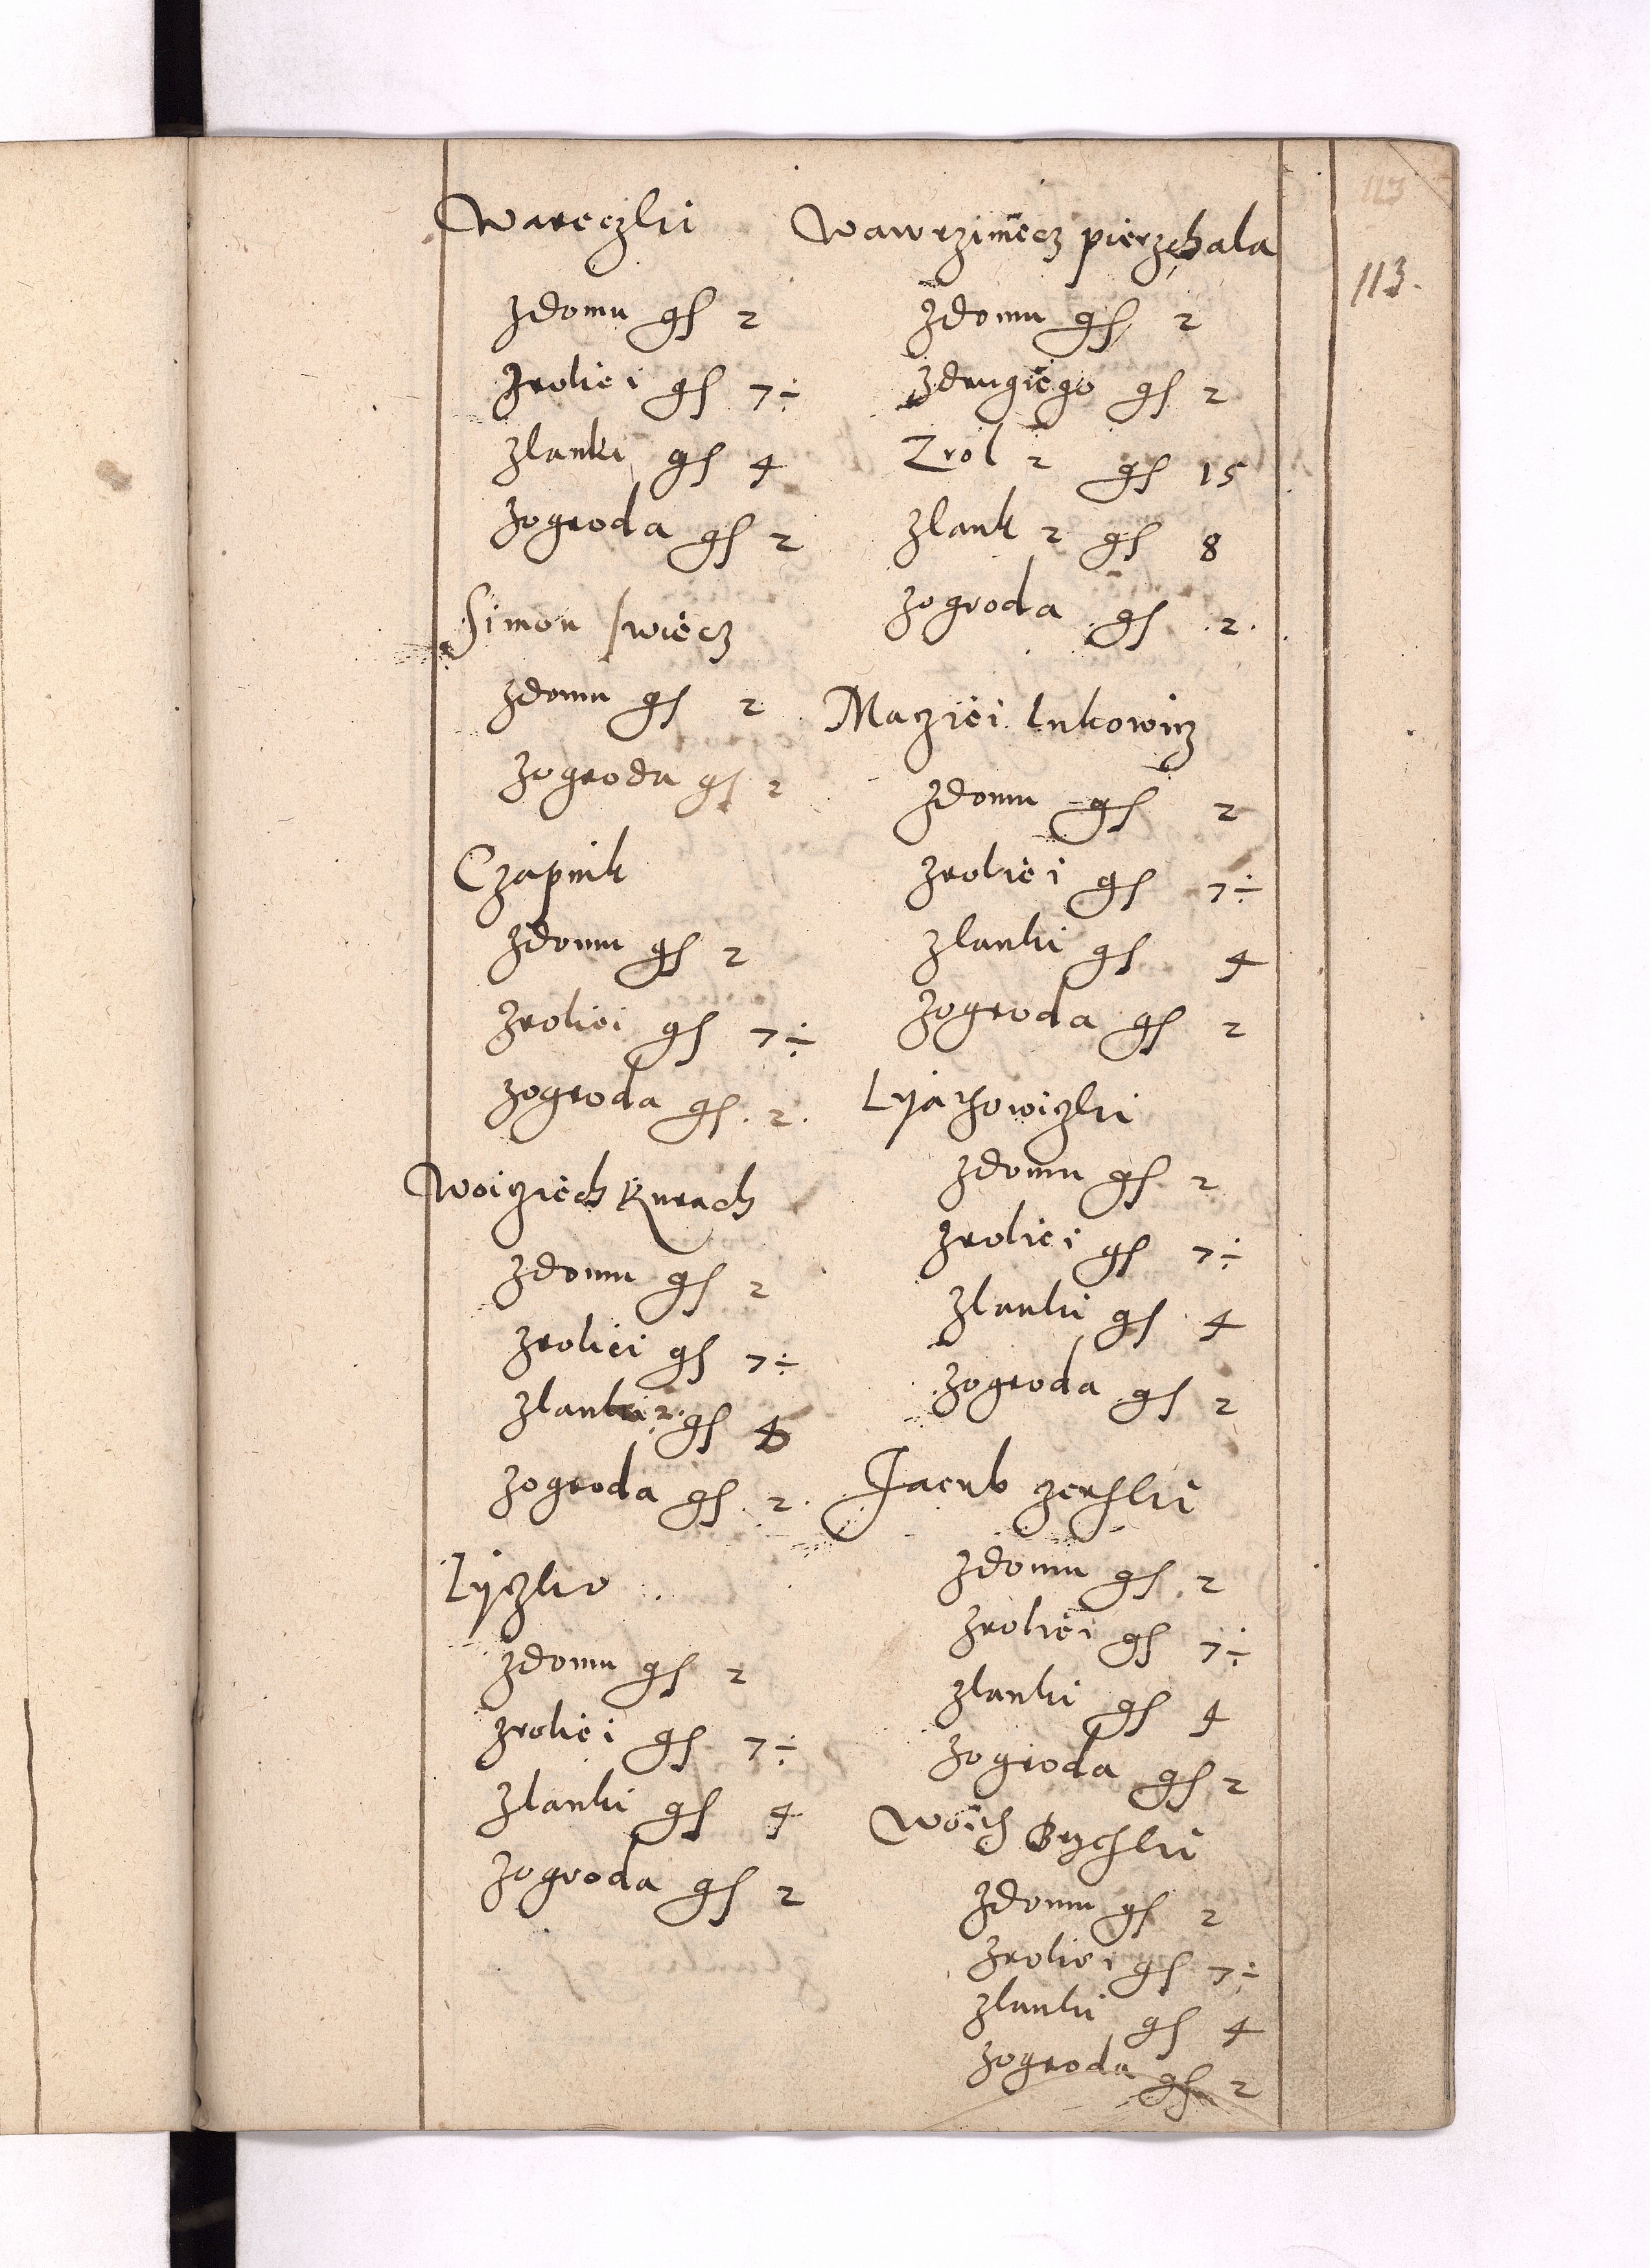 113
113.
Wareczki
Zdomu gs 2
Zroliei gs 7 ÷
Zlanki gs 4
Zogroda gs 2
Simon swiecz
Zdomu gs 2
Zogroda gs 2
Czapnik
Zdomu gs 2
Zroliei gs 7 ÷
Zogroda gs. 2.
Woiciech Kurach
Zdomu gs 2
Zroliei gs 7 ÷
gs
Zogroda gs. 2.
Lyczko
Zdomu gs 2
Zroliei gs 7 ÷
Zlanki gs 4
Zogroda gs 2
Wawrziniecz pierzchala
Zdomu gs 2
Zdrugiego gs 2
Zrol 2 gs 15
Zlank 2 gs 8
Zogroda gs 2.
Macziei Lukowicz
Zdomu gs 2
Zroliei gs 7 ÷
Zlanki gs 4
Zogroda gs 2
Lyachowiczki
Zdomu gs 2
Zroliei gs 7 ÷
Zlanki gs 4
Zogroda gs 2
Jacub
Zdomu gs 2
Zroliei gs 7 ÷
Zlanki gs 4
Zogroda gs 2
Woich
Zdomu gs 2
Zroliei gs 7 ÷
Zlanki gs 4
Zogroda gs 2